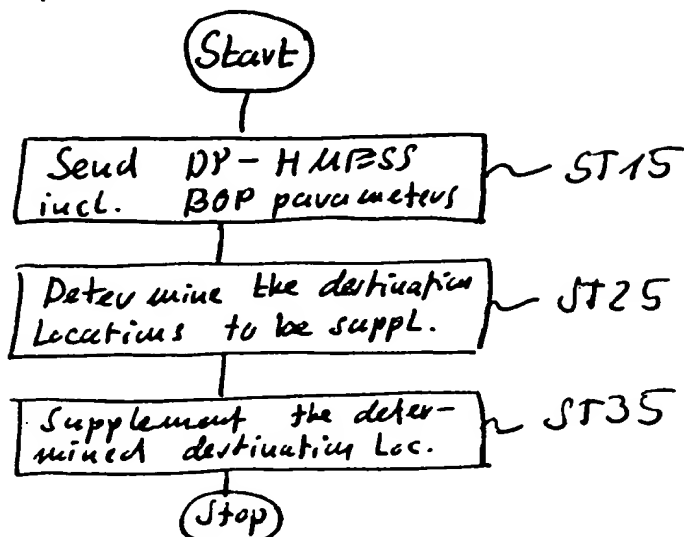 Start
Send DP-HMESS
incl. BOP parameters
ST15
Determine the destination
Locations to be suppl.
ST25
Supplement the deter-
mined destination Loc.
ST35
Stop